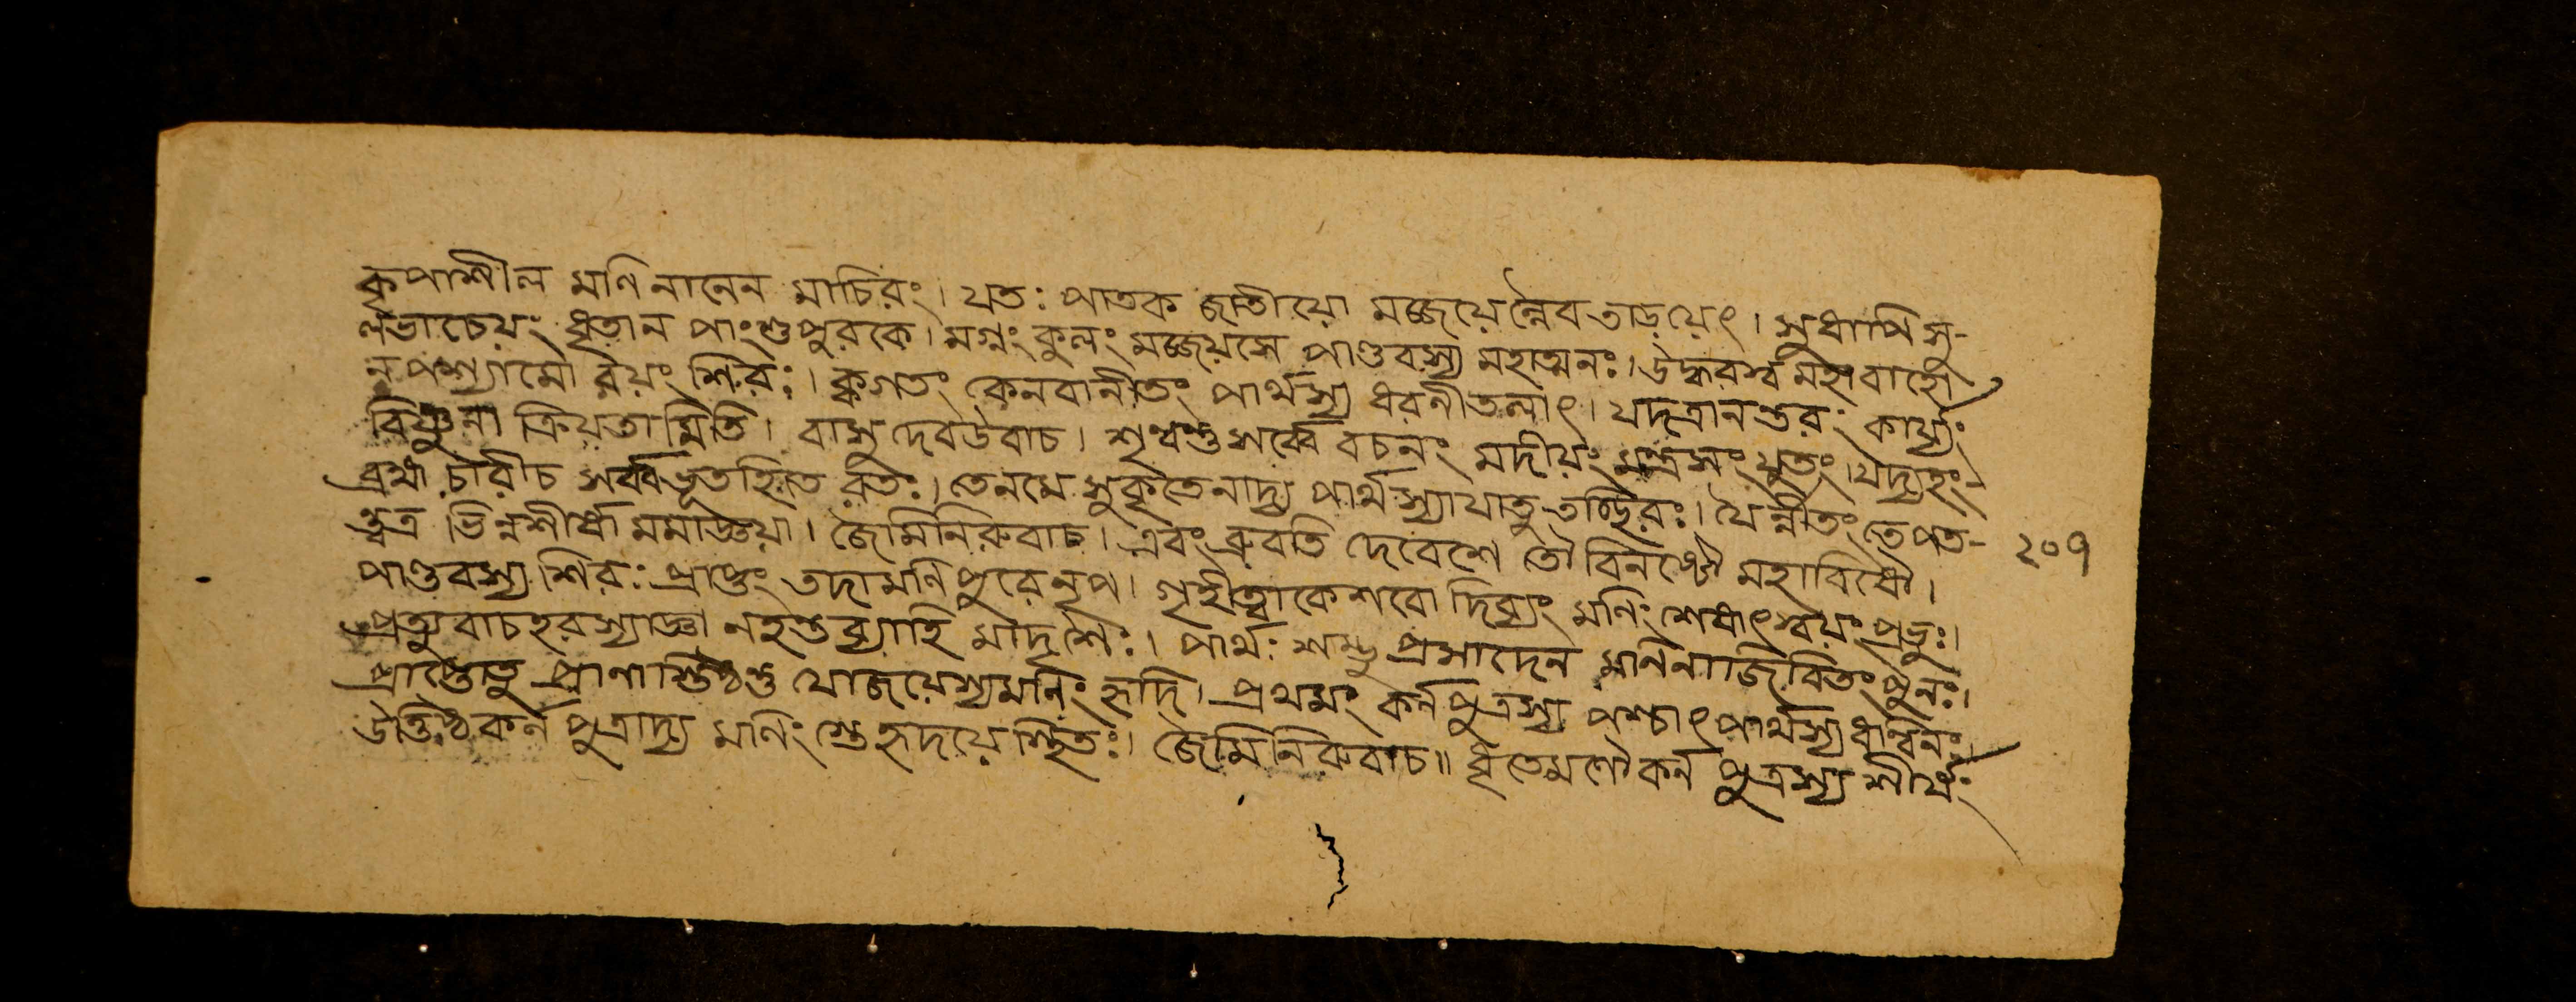 কৃপাশীল মণি নানেন মাচিরং। যত: পাতক জাতীয়ো মজ্জয়েন্নৈব তাড়য়েৎ। সুধাপি সু-
লভাচেয়ং ধৃতান পাংশুপুরকে। মগ্নং কুলং মজ্জয়সে পাণ্ডবস্য মহাত্মনঃ। উদ্ধরস্ব মহাবাহো
ন পশ্যামো রয়ং শির:। ক্বগতং কেনবানীতং পার্থস্য ধরনীতলাৎ। যদত্রানন্তরং কার্য্যং
বিষ্ণুনা ক্রিয়তামিতি। বাসুদেবউবাচ। শৃণ্বন্তুসর্ব্বে বচনং মদীয়ং যুতং। যদ্যহং
ব্রহ্মচারীচ সর্ব্বভূতহিতে রতঃ। তেনমে সুকৃতেনাদ্য পার্থস্যাযাতু তচ্ছিরঃ। যৈর্ন্নীতং তেপত-
ন্ত্বত্র ভিন্নশীর্ষা মমাজ্ঞয়া। জৈমিনিরুবাচ। এবং ব্রুবতি দেবেশে তৌ বিনষ্টৌ মহাবিষৌ।
২০৭
পাণ্ডবস্য শির: প্রাপ্তং তদামণিপুরে নৃপ। গৃহীত্বাকেশবো দিব্যং মনিং শেষাৎস্বয়ং প্রভুঃ।
প্রত্যুবাচহরস্যাজ্ঞা নহন্তব্যাহি মাদৃশৈঃ। পার্থ: শম্ভু প্রসাদেন মনিনাজিবিতং পুনঃ।
প্রাপ্তোতু প্রাণাস্তিষ্ঠন্তু যোজয়েস্যমনিং হৃদি। প্রথমং কর্নপুত্রস্য পশ্চাৎপার্থস্যধন্বিনঃ।
উত্তিষ্ঠকর্ন পুত্রাদ্য মনিংস্তেহৃদয়ে স্থিতঃ। জৈমিনিরুবাচ॥ ধৃতেমণৌকর্ন পুত্রস্য শীর্ষং